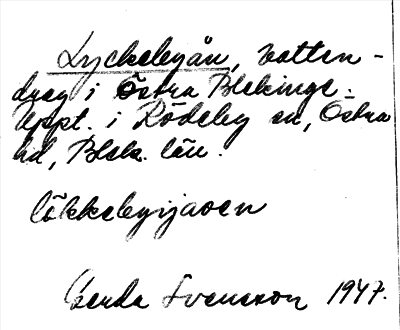 Lyckebyån, vatten-
drag i Östra Blekinge.
Uppt. i Rödeby sn, Östra
hd, Blek. län.
lökkebyijaoen
Gerda Svensson 1947.